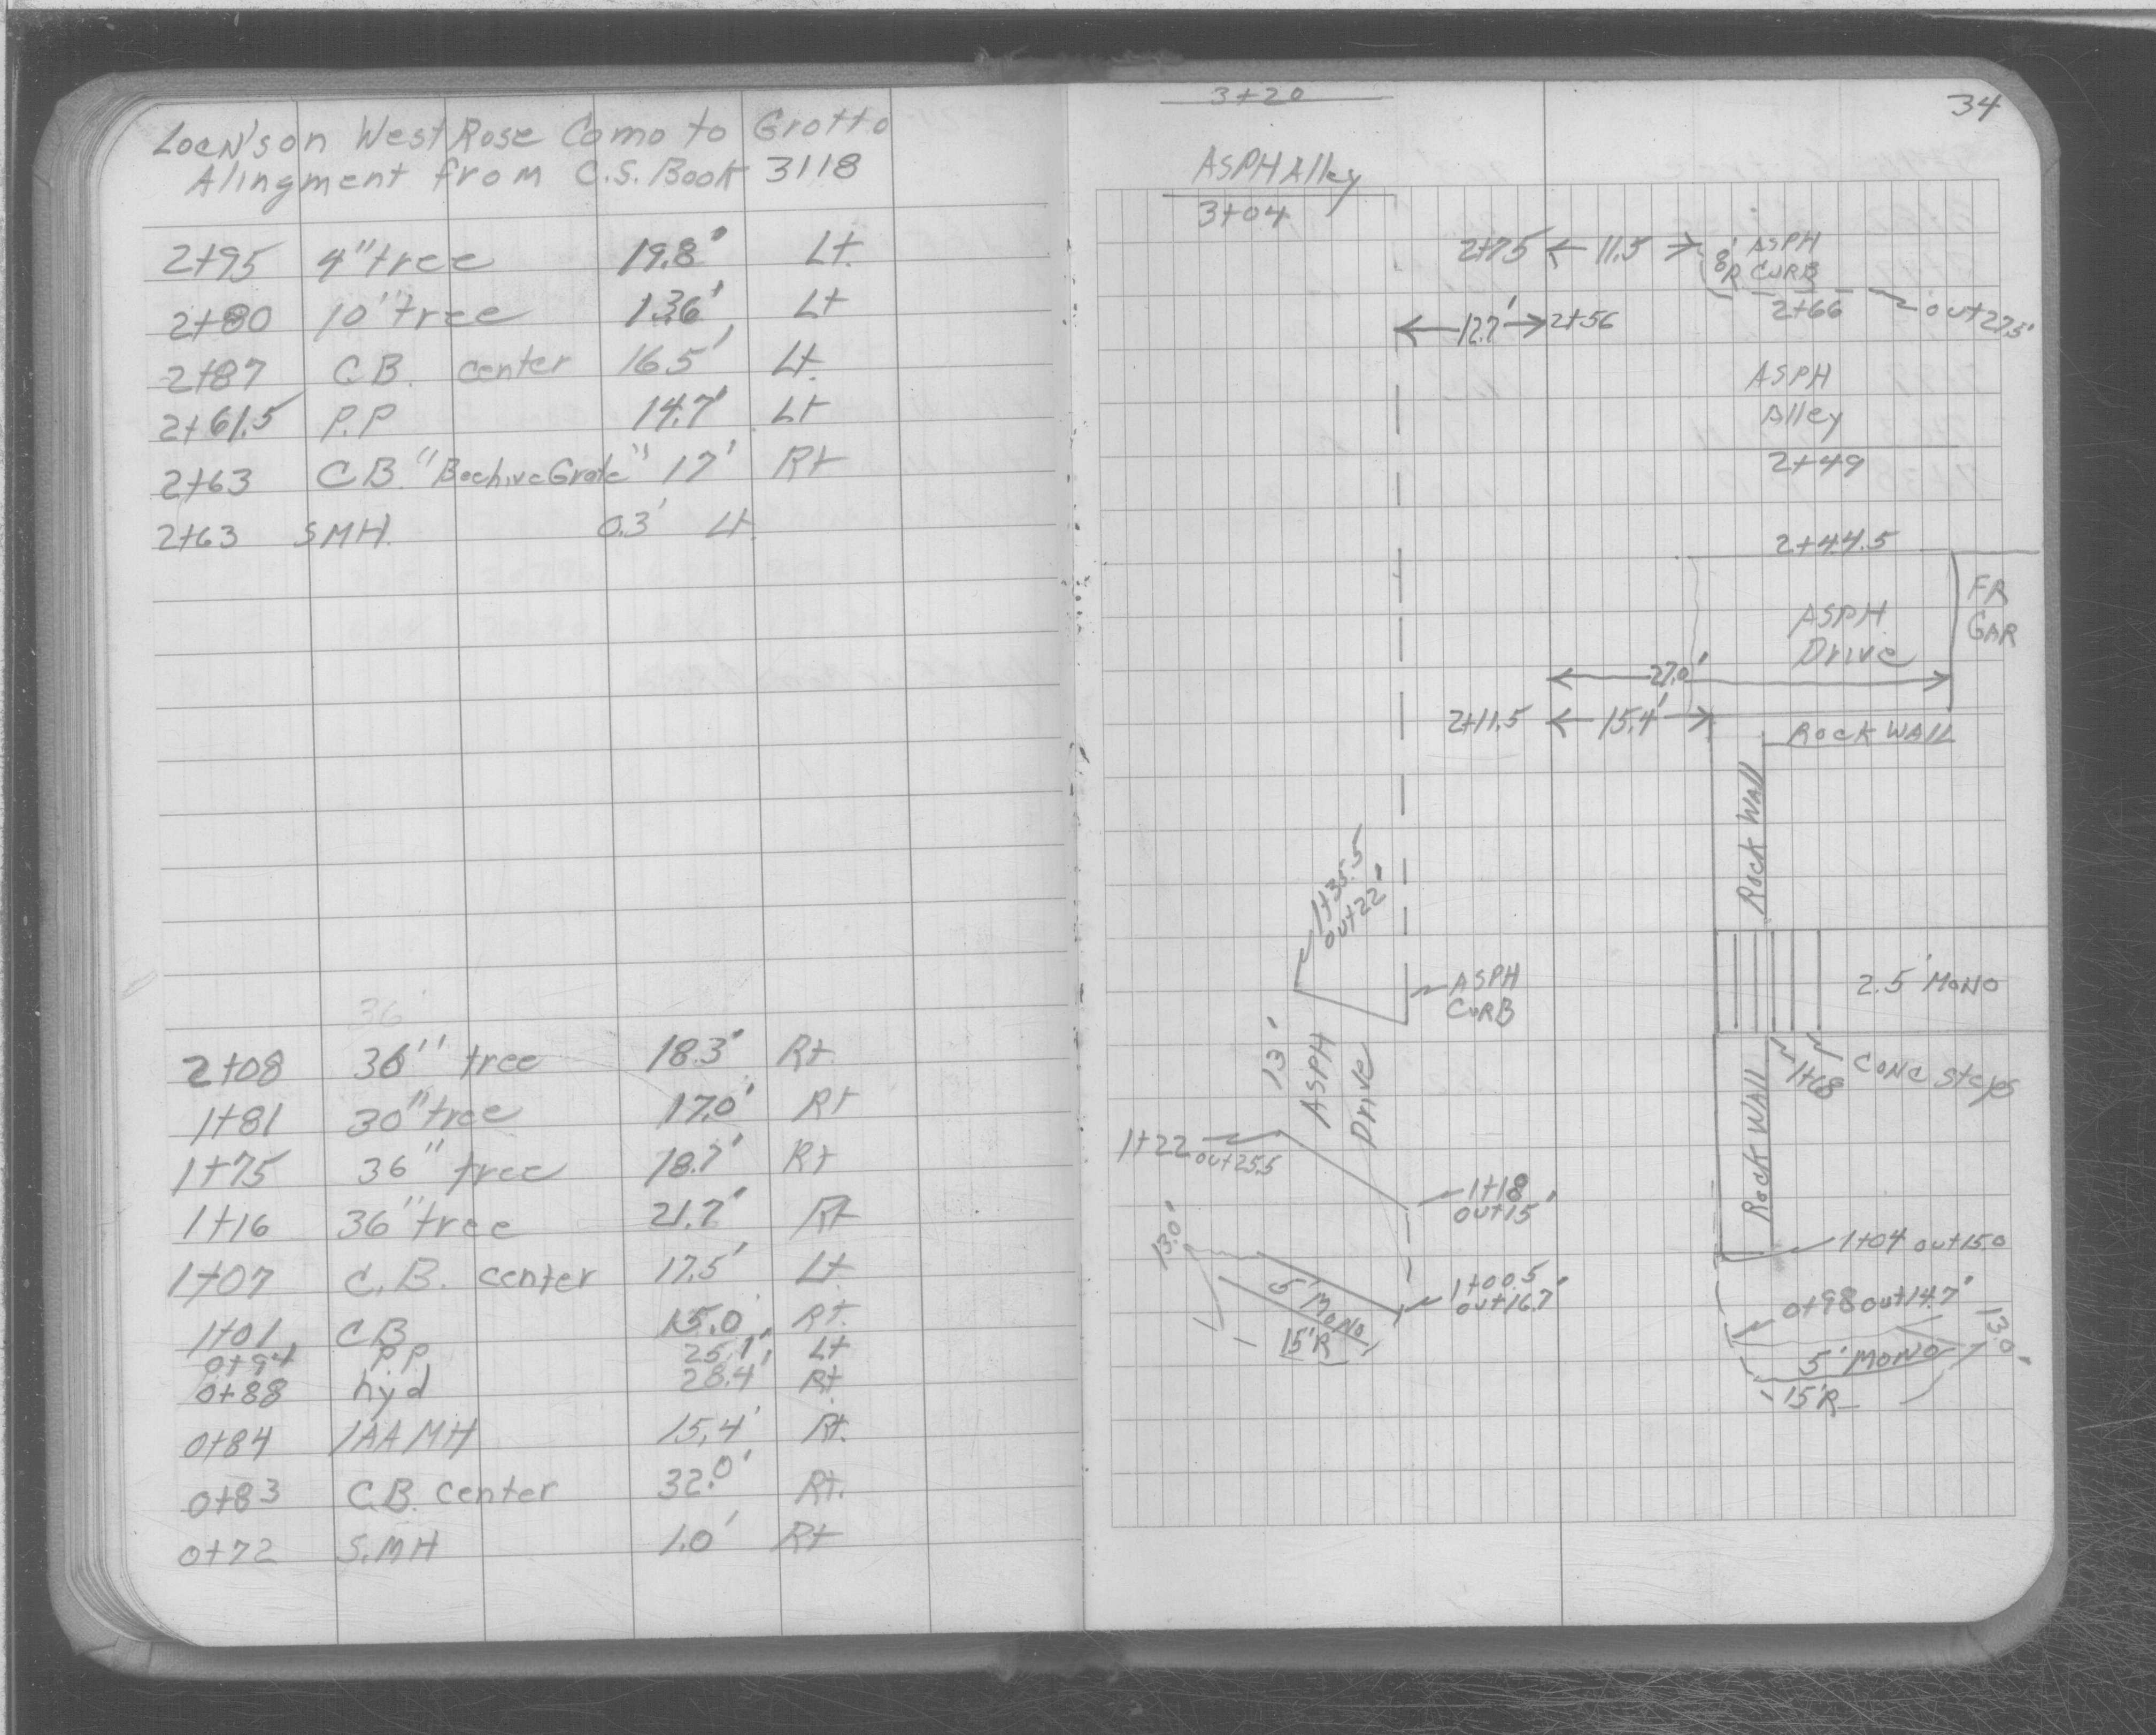 Locn's on West Rose Como to Grotto
Alingment from C.S. Book 3118
2+95 4" tree 19.8' Lt.
2+80 10" tree 13.6' Lt
2+87 C.B. center 16.5' Lt.
2+61.5 P.P 14.7' Lt
2+63 C.B. "Beehive Grate" 17' Rt
2+63 SMH. 0.3' Lt.
36
2+08 36" tree 18.3' Rt.
1+81 30" tree 17.0' Rt
1+75 36" tree 18.7' Rt
1+16 36" tree 21.7' Rt
1+07 C.B. center 17.5' Lt.
1+01 C.B 15.0 Rt.
0+94 P.P. 25.1' Lt
0+88 hyd 28.4' Rt
0+84 1AA MH 15.4' Rt.
0+83 C.B. center 32.0' Rt.
0+72 S.MH 1.0' Rt
34
3+20
ASPH Alley
3+04
2+75 11.5
8' R
ASPH
CURB
2+66
out 27.5'
12.7' 2+56
ASPH
Alley
2+49
2+44.5
FR
GAR
ASPH
Drive
27.0'
2+11.5 15.4'
Rock WALL
Rock WAll
1+35.5
out 22'
ASPH
CURB
2.5' MONO
13'
ASPH
Drive
1+68 CONC Steps
Rock WALL
1+22 out 25.5
1+18
out 15'
13.0'
5' MONO
15'R
1+00.5
out 16.7'
1+04 out 15.0
0+98 out 14.7'
13.0'
5' MONO
15'R